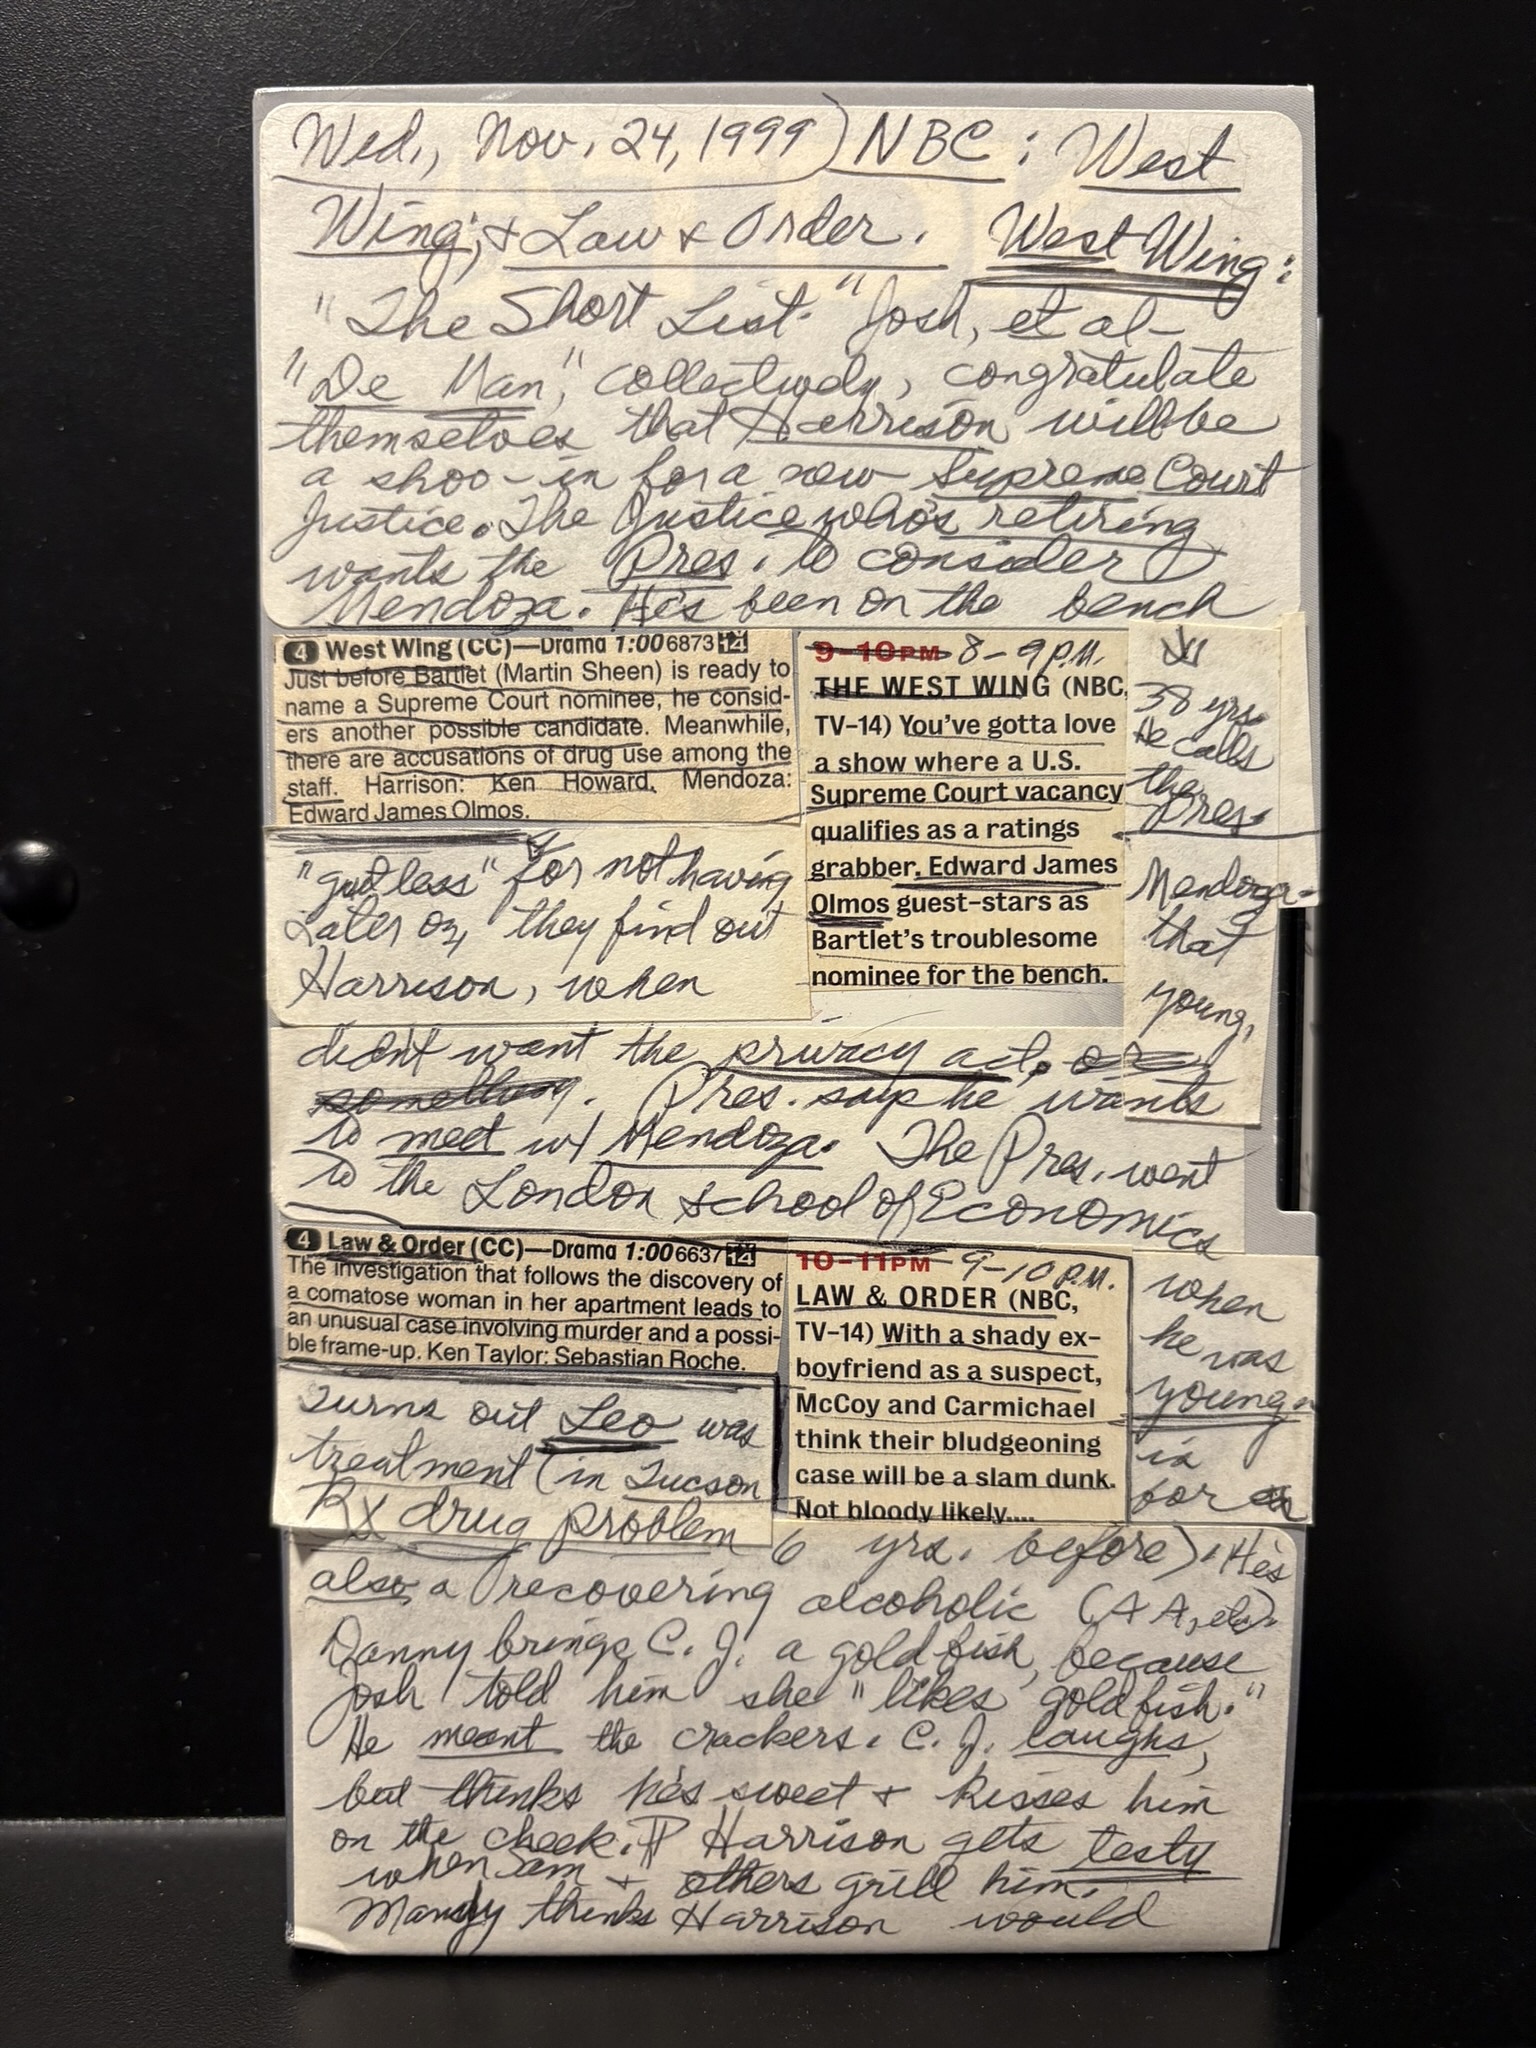 Wed., Nov. 24, 1999) NBC: West
Wing; + Law & Order. West Wing:
"The Short List." Josh, et al -
"De Man," collectively, congratulate
themselves that Harrison will be
a shoo-in for a new Supreme Court
Justice. The Justice who's retiring
wants the Pres. to consider
Mendoza. He's been on the bench
38 yrs.
He calls
the
Pres.
4 West Wing (CC)—Drama 1:00 6873 14
Just before Bartlet (Martin Sheen) is ready to
name a Supreme Court nominee, he consid-
ers another possible candidate. Meanwhile,
there are accusations of drug use among the
staff. Harrison: Ken Howard. Mendoza:
Edward James Olmos.
9-10PM 8-9 P.M.
THE WEST WING (NBC,
TV-14) You've gotta love
a show where a U.S.
Supreme Court vacancy
qualifies as a ratings
grabber. Edward James
Olmos guest-stars as
Bartlet's troublesome
nominee for the bench.
"gutless" for not having
Mendoza-
Later on, they find out
that
Harrison, when
young,
didn't want the privacy act, or
something. Pres. says he wants
to meet w/ Mendoza. The Pres. went
to the London School of Economics
when
he was
young.
4 Law & Order (CC)—Drama 1:00 6637 14
The investigation that follows the discovery of
a comatose woman in her apartment leads to
an unusual case involving murder and a possi-
ble frame-up. Ken Taylor: Sebastian Roche.
10-11PM 9-10 P.M.
LAW & ORDER (NBC,
TV-14) With a shady ex-
boyfriend as a suspect,
McCoy and Carmichael
think their bludgeoning
case will be a slam dunk.
Not bloody likely....
Turns out Leo was
in
treatment (in Tucson
for
Rx drug problem 6 yrs. before). He's
also a recovering alcoholic (AA, etc).
Danny brings C.J. a goldfish, because
Josh told him she "likes goldfish."
He meant the crackers. C.J. laughs,
but thinks he's sweet + kisses him
on the cheek. ¶ Harrison gets testy
when Sam + others grill him.
Mandy thinks Harrison would